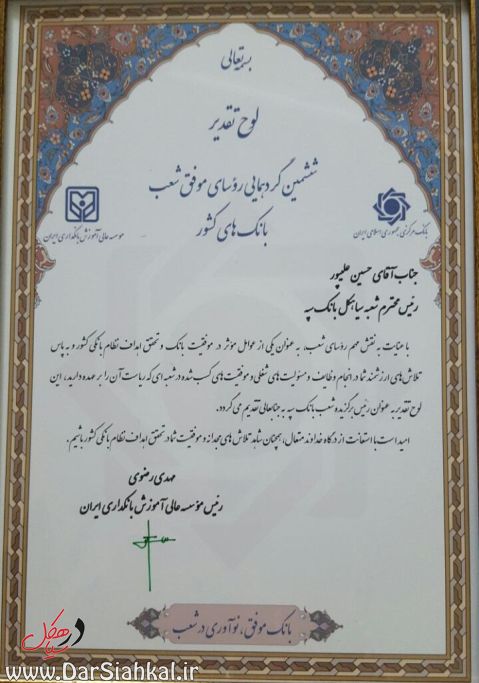 بسمه تعالی
لوح تقدیر
ششمین گردهمایی رؤسای موفق شعب
بانک های کشور
بانک مرکزی جمهوری اسلامی ایران
موسسه عالی آموزش بانکداری ایران
جناب آقای حسین علیپور
رئیس محترم شعبه سیاهکل بانک سپه
با عنایت به نقش مهم رؤسای شعب، به عنوان یکی از عوامل مؤثر در موفقیت بانک و تحقق اهداف نظام بانکی کشور و به پاس
تلاش های ارزشمند شما در انجام وظایف و مسئولیت های شغلی و موفقیت های کسب شده در شعبه ای که ریاست آن را بر عهده دارید، این
لوح تقدیر به عنوان رئیس برگزیده شعب بانک سپه به جنابعالی تقدیم می گردد.
امید است با استعانت از درگاه خداوند متعال، همچنان شاهد تلاش های مجدانه و موفقیت شما در تحقق اهداف نظام بانکی کشور باشیم.
مهدی رضوی
رئیس مؤسسه عالی آموزش بانکداری ایران
بانک موفق، نوآوری در شعب
در سیاهکل
www.DarSiahkal.ir